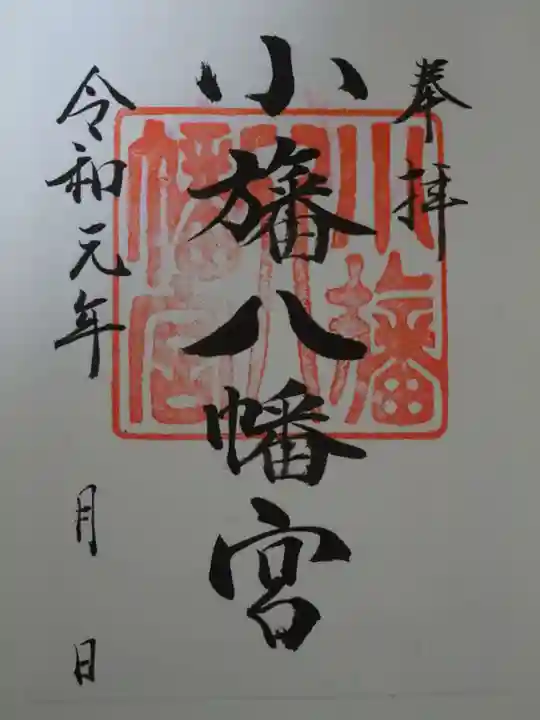 奉拝
小旛八幡宮
令和元年 月 日
小旛
八
幡宮